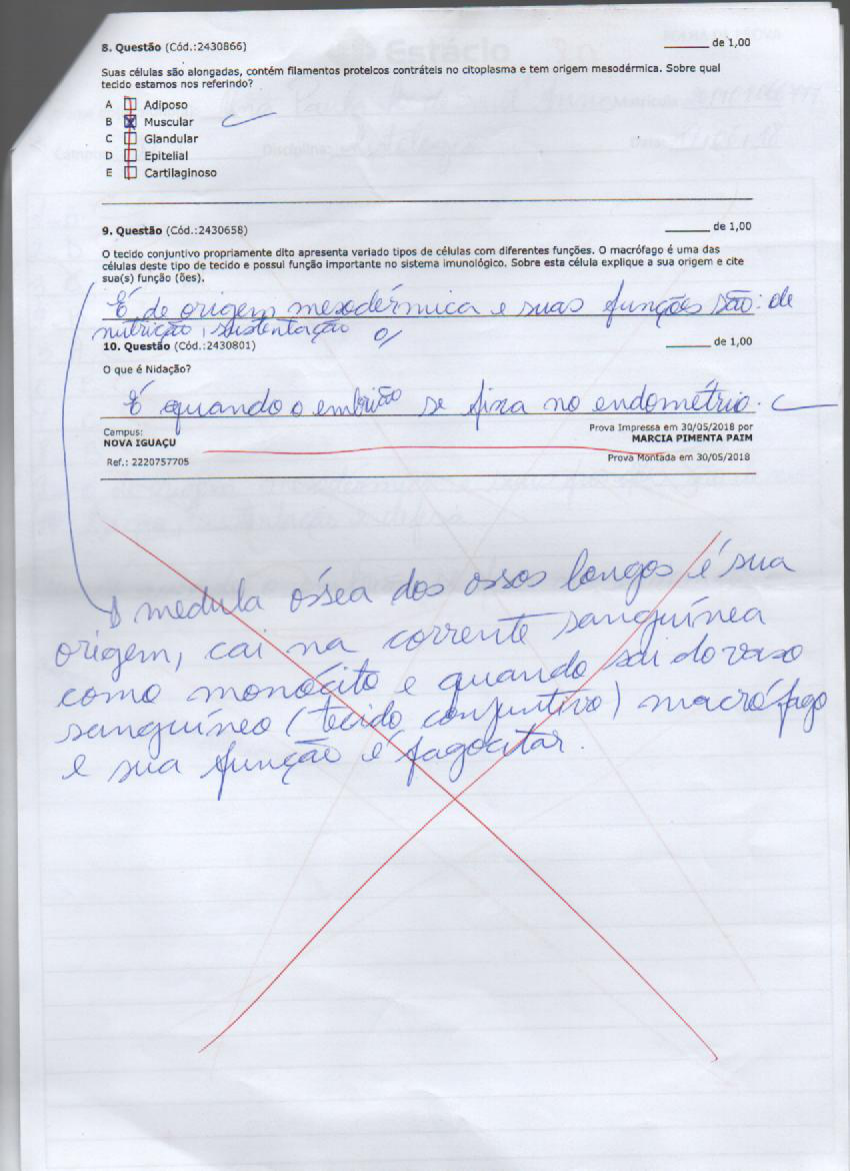 8. Questão (Cód.:2430866) ______ de 1,00
Suas células são alongadas, contém filamentos proteicos contráteis no citoplasma e tem origem mesodérmica. Sobre qual
tecido estamos nos referindo?
A Adiposo
B Muscular
C Glandular
D Epitelial
E Cartilaginoso
9. Questão (Cód.:2430658) ______ de 1,00
O tecido conjuntivo propriamente dito apresenta variado tipos de células com diferentes funções. O macrófago é uma das
células deste tipo de tecido e possui função importante no sistema imunológico. Sobre esta célula explique a sua origem e cite
sua(s) função (ões).
É de origem mesodérmica e suas funções são: de
nutrição, sustentação
10. Questão (Cód.:2430801) ______ de 1,00
O que é Nidação?
É quando o embrião se fixa no endométrio.
Campus:
NOVA IGUAÇU
Prova Impressa em 30/05/2018 por
MARCIA PIMENTA PAIM
Ref.: 2220757705
Prova Montada em 30/05/2018
medula óssea dos ossos longos é sua
origem, cai na corrente sanguínea
como monócito e quando sai do vaso
sanguíneo (tecido conjuntivo) macrófago
e sua função é fagocitar.